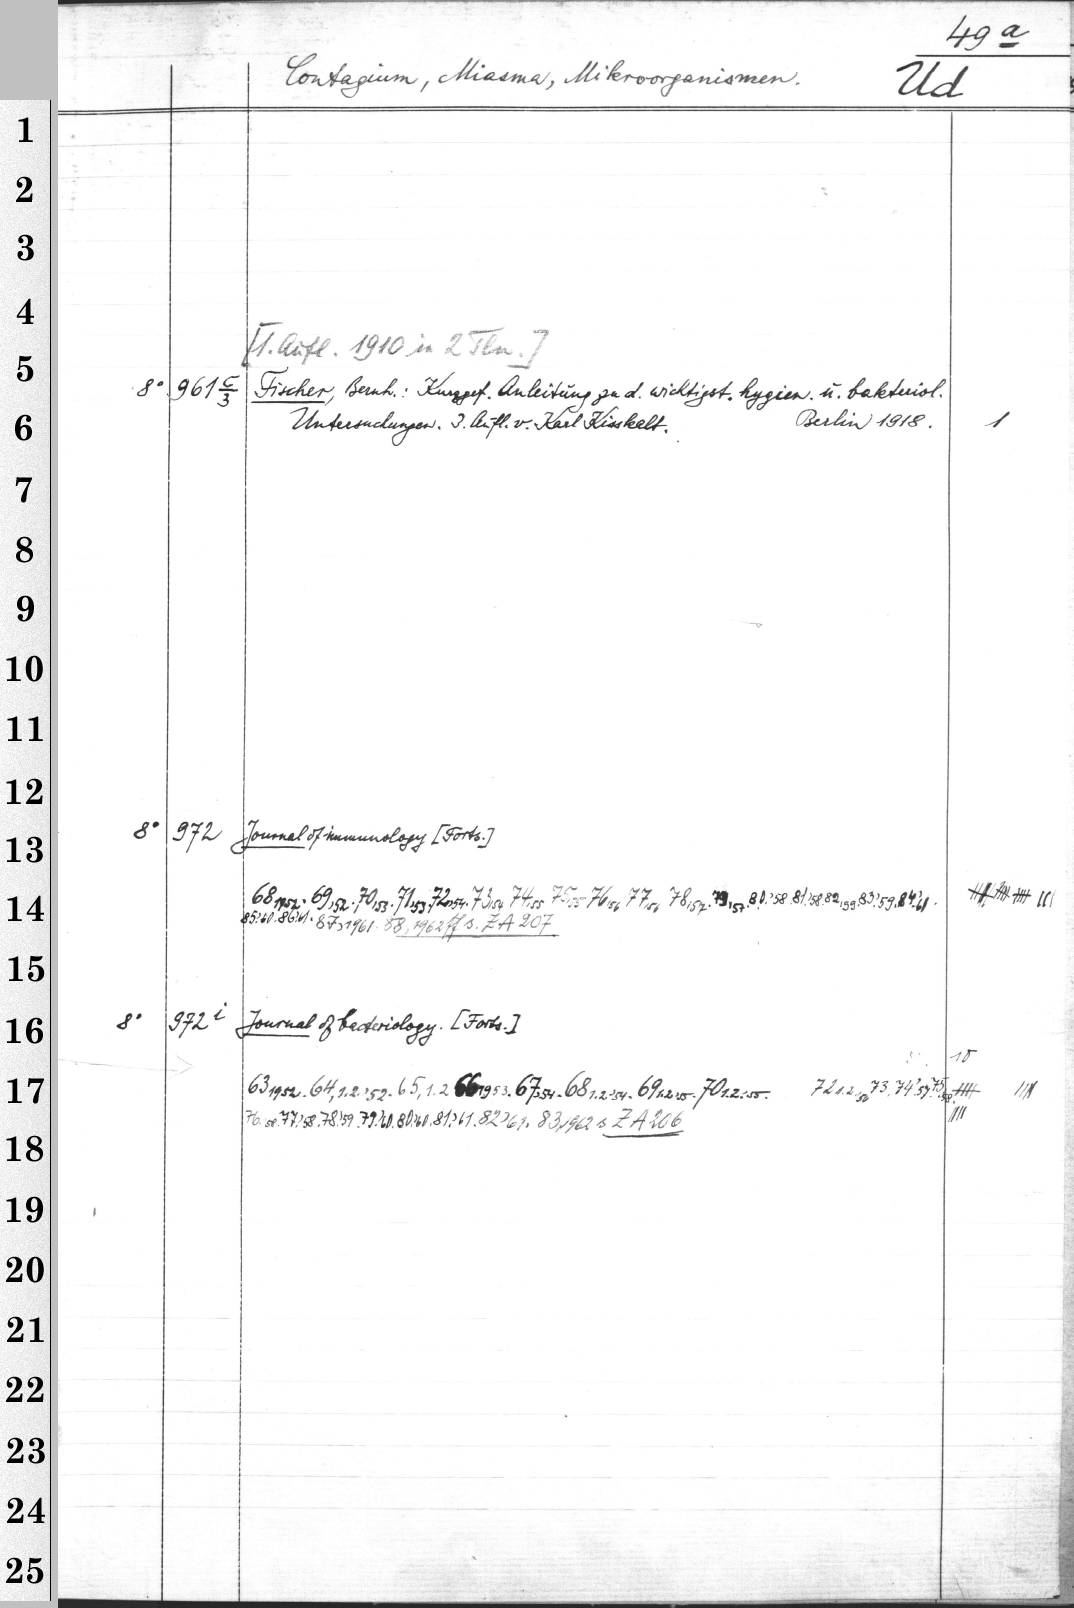 49a
Contagium, Miasma, Mikroorganismen. Ud
1
2
3
4
[1. Aufl. 1910 in 2 Tln.]
5
8° 961 c/3 Fischer, Bernh.: Kurzgef. Anleitung zu d. wichtigst. hygien. u. bakteriol.
6 Untersuchungen. 3. Aufl. v. Karl Kisskalt. Berlin 1918. 1
7
8
9
10
11
12
8° 972 Journal of immunology [Forts.]
13
14 68,1952. 69,52. 70,53. 71,53. 72,54. 73,54 74,55 75,55 76,56 77,56 78,57. 79,57. 80,'58. 81,'58. 82,59. 83,'59. 84,'61.
85,'60. 86,'61. 87,1961. 88,1962 ff s. ZA 207
15
8° 972 i Journal of bacteriology. [Forts.]
16
10
17 63,1952. 64,1.2.'52. 65,1.2 66,1953. 67,54. 68,1.2.'54. 69,1.2.55. 70,1.2.'55. 72,1.2. 73. 74,'57.
76,58. 77,'58. 78,'59. 79,'60. 80,'60. 81,'61. 82,'61. 83,1962 s. ZA 206
18
19
20
21
22
23
24
25